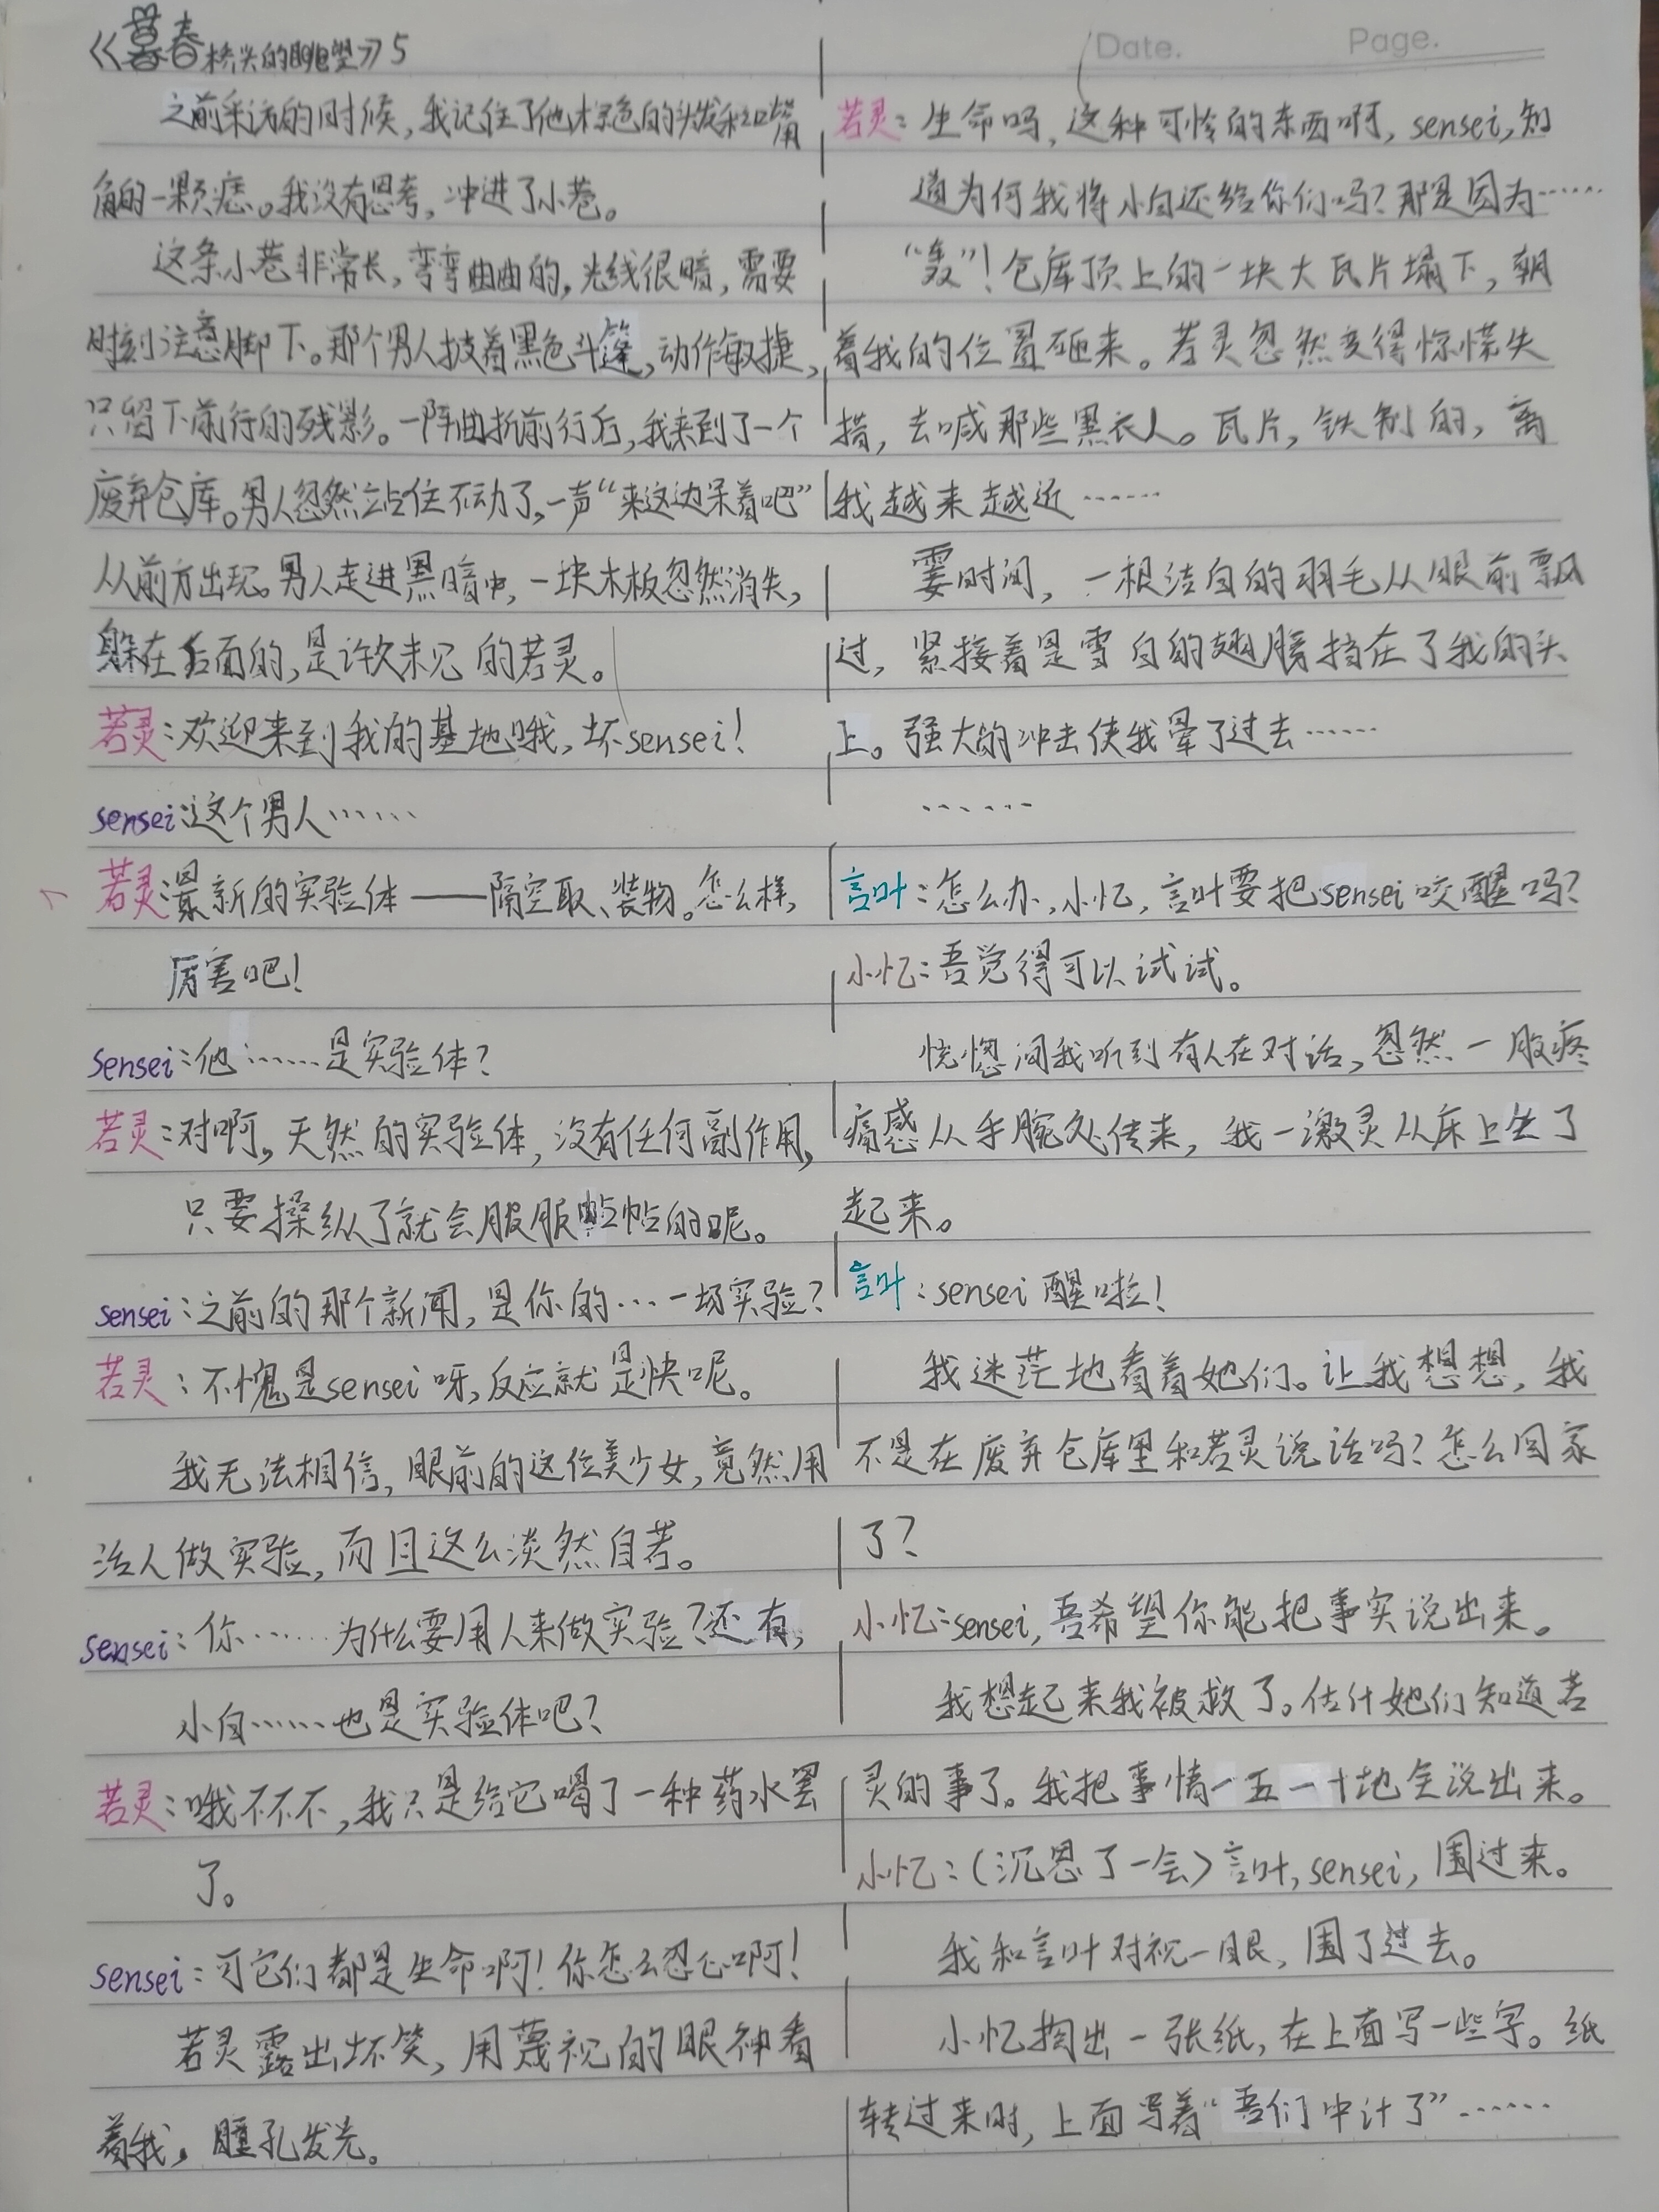 《暮春桥头的眺望》5
Date. Page.
之前采访的时候，我记住了他棕色的头发和嘴
角的一颗痣。我没有思考，冲进了小巷。
这条小巷非常长，弯弯曲曲的，光线很暗，需要
时刻注意脚下。那个男人披着黑色斗篷，动作敏捷，
只留下前行的残影。一阵曲折前行后，我来到了一个
废弃仓库。男人忽然站住不动了，一声“来这边呆着吧”
从前方出现。男人走进黑暗中，一块木板忽然消失，
躲在后面的，是许久未见的若灵。
若灵：欢迎来到我的基地哦，坏sensei！
sensei：这个男人……
若灵：最新的实验体——隔空取、装物。怎么样，
厉害吧！
sensei：他……是实验体？
若灵：对啊，天然的实验体，没有任何副作用，
只要操纵了就会服服帖帖的呢。
sensei：之前的那个新闻，是你的…一场实验？
若灵：不愧是sensei呀，反应就是快呢。
我无法相信，眼前的这位美少女，竟然用
活人做实验，而且这么淡然自若。
sensei：你……为什么要用人来做实验？还有，
小白……也是实验体吧？
若灵：哦不不不，我只是给它喝了一种药水罢
了。
sensei：可它们都是生命啊！你怎么忍心啊！
若灵露出坏笑，用蔑视的眼神看
着我，瞳孔发光。
若灵：生命吗，这种可怜的东西啊，sensei，知
道为何我将小白还给你们吗？那是因为……
“轰”！仓库顶上的一块大瓦片塌下，朝
着我的位置砸来。若灵忽然变得惊慌失
措，去喊那些黑衣人。瓦片，铁制的，离
我越来越近……
霎时间，一根洁白的羽毛从眼前飘
过，紧接着是雪白的翅膀挡在了我的头
上。强大的冲击使我晕了过去……
……
言叶：怎么办，小忆，言叶要把sensei咬醒吗？
小忆：吾觉得可以试试。
恍惚间我听到有人在对话，忽然一股疼
痛感从手腕处传来，我一激灵从床上坐了
起来。
言叶：sensei醒啦！
我迷茫地看着她们。让我想想，我
不是在废弃仓库里和若灵说话吗？怎么回家
了？
小忆：sensei，吾希望你能把事实说出来。
我想起来我被救了。估计她们知道若
灵的事了。我把事情一五一十地全说出来。
小忆：（沉思了一会）言叶，sensei，围过来。
我和言叶对视一眼，围了过去。
小忆掏出一张纸，在上面写一些字。纸
转过来时，上面写着“吾们中计了”……